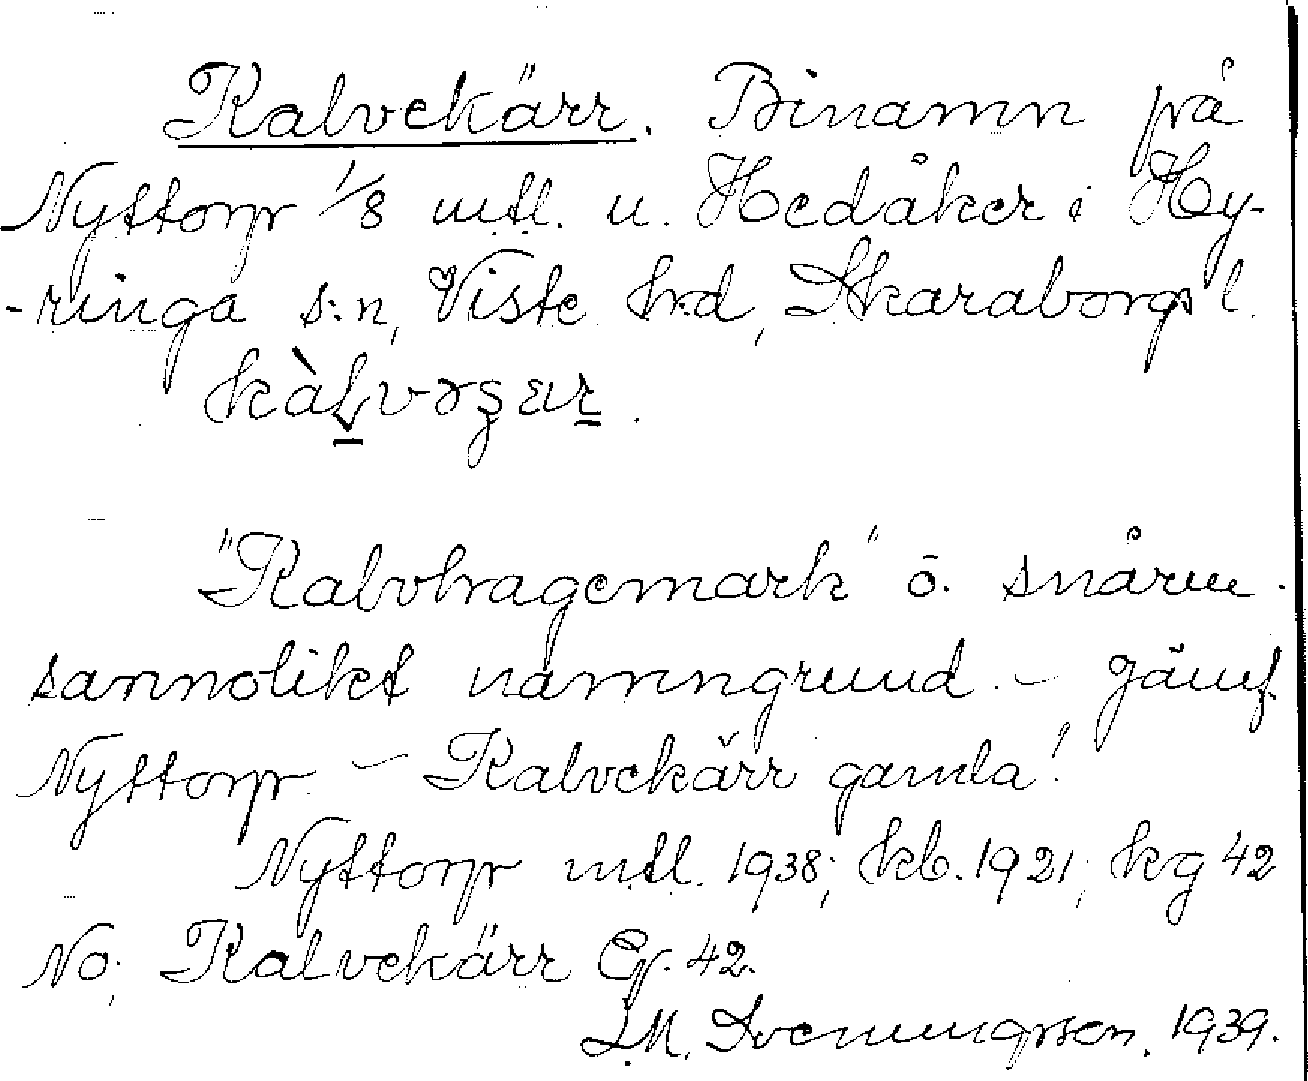 Kalvekärr. Binamn på
Nyttorp 1/8 mtl. u. Hedåker i Hy-
-ringa s:n, Viste hd, Skaraborgs l.
kàLvəʂær.
"Kalvhagemark" o. snårm.
sannolikt namngrund. - Jämf.
Nyttorp - Kalvekärr gamla!
Nyttorp mtl. 1938; kb. 1921; kg 42
No; Kalvekärr 42.
1939.